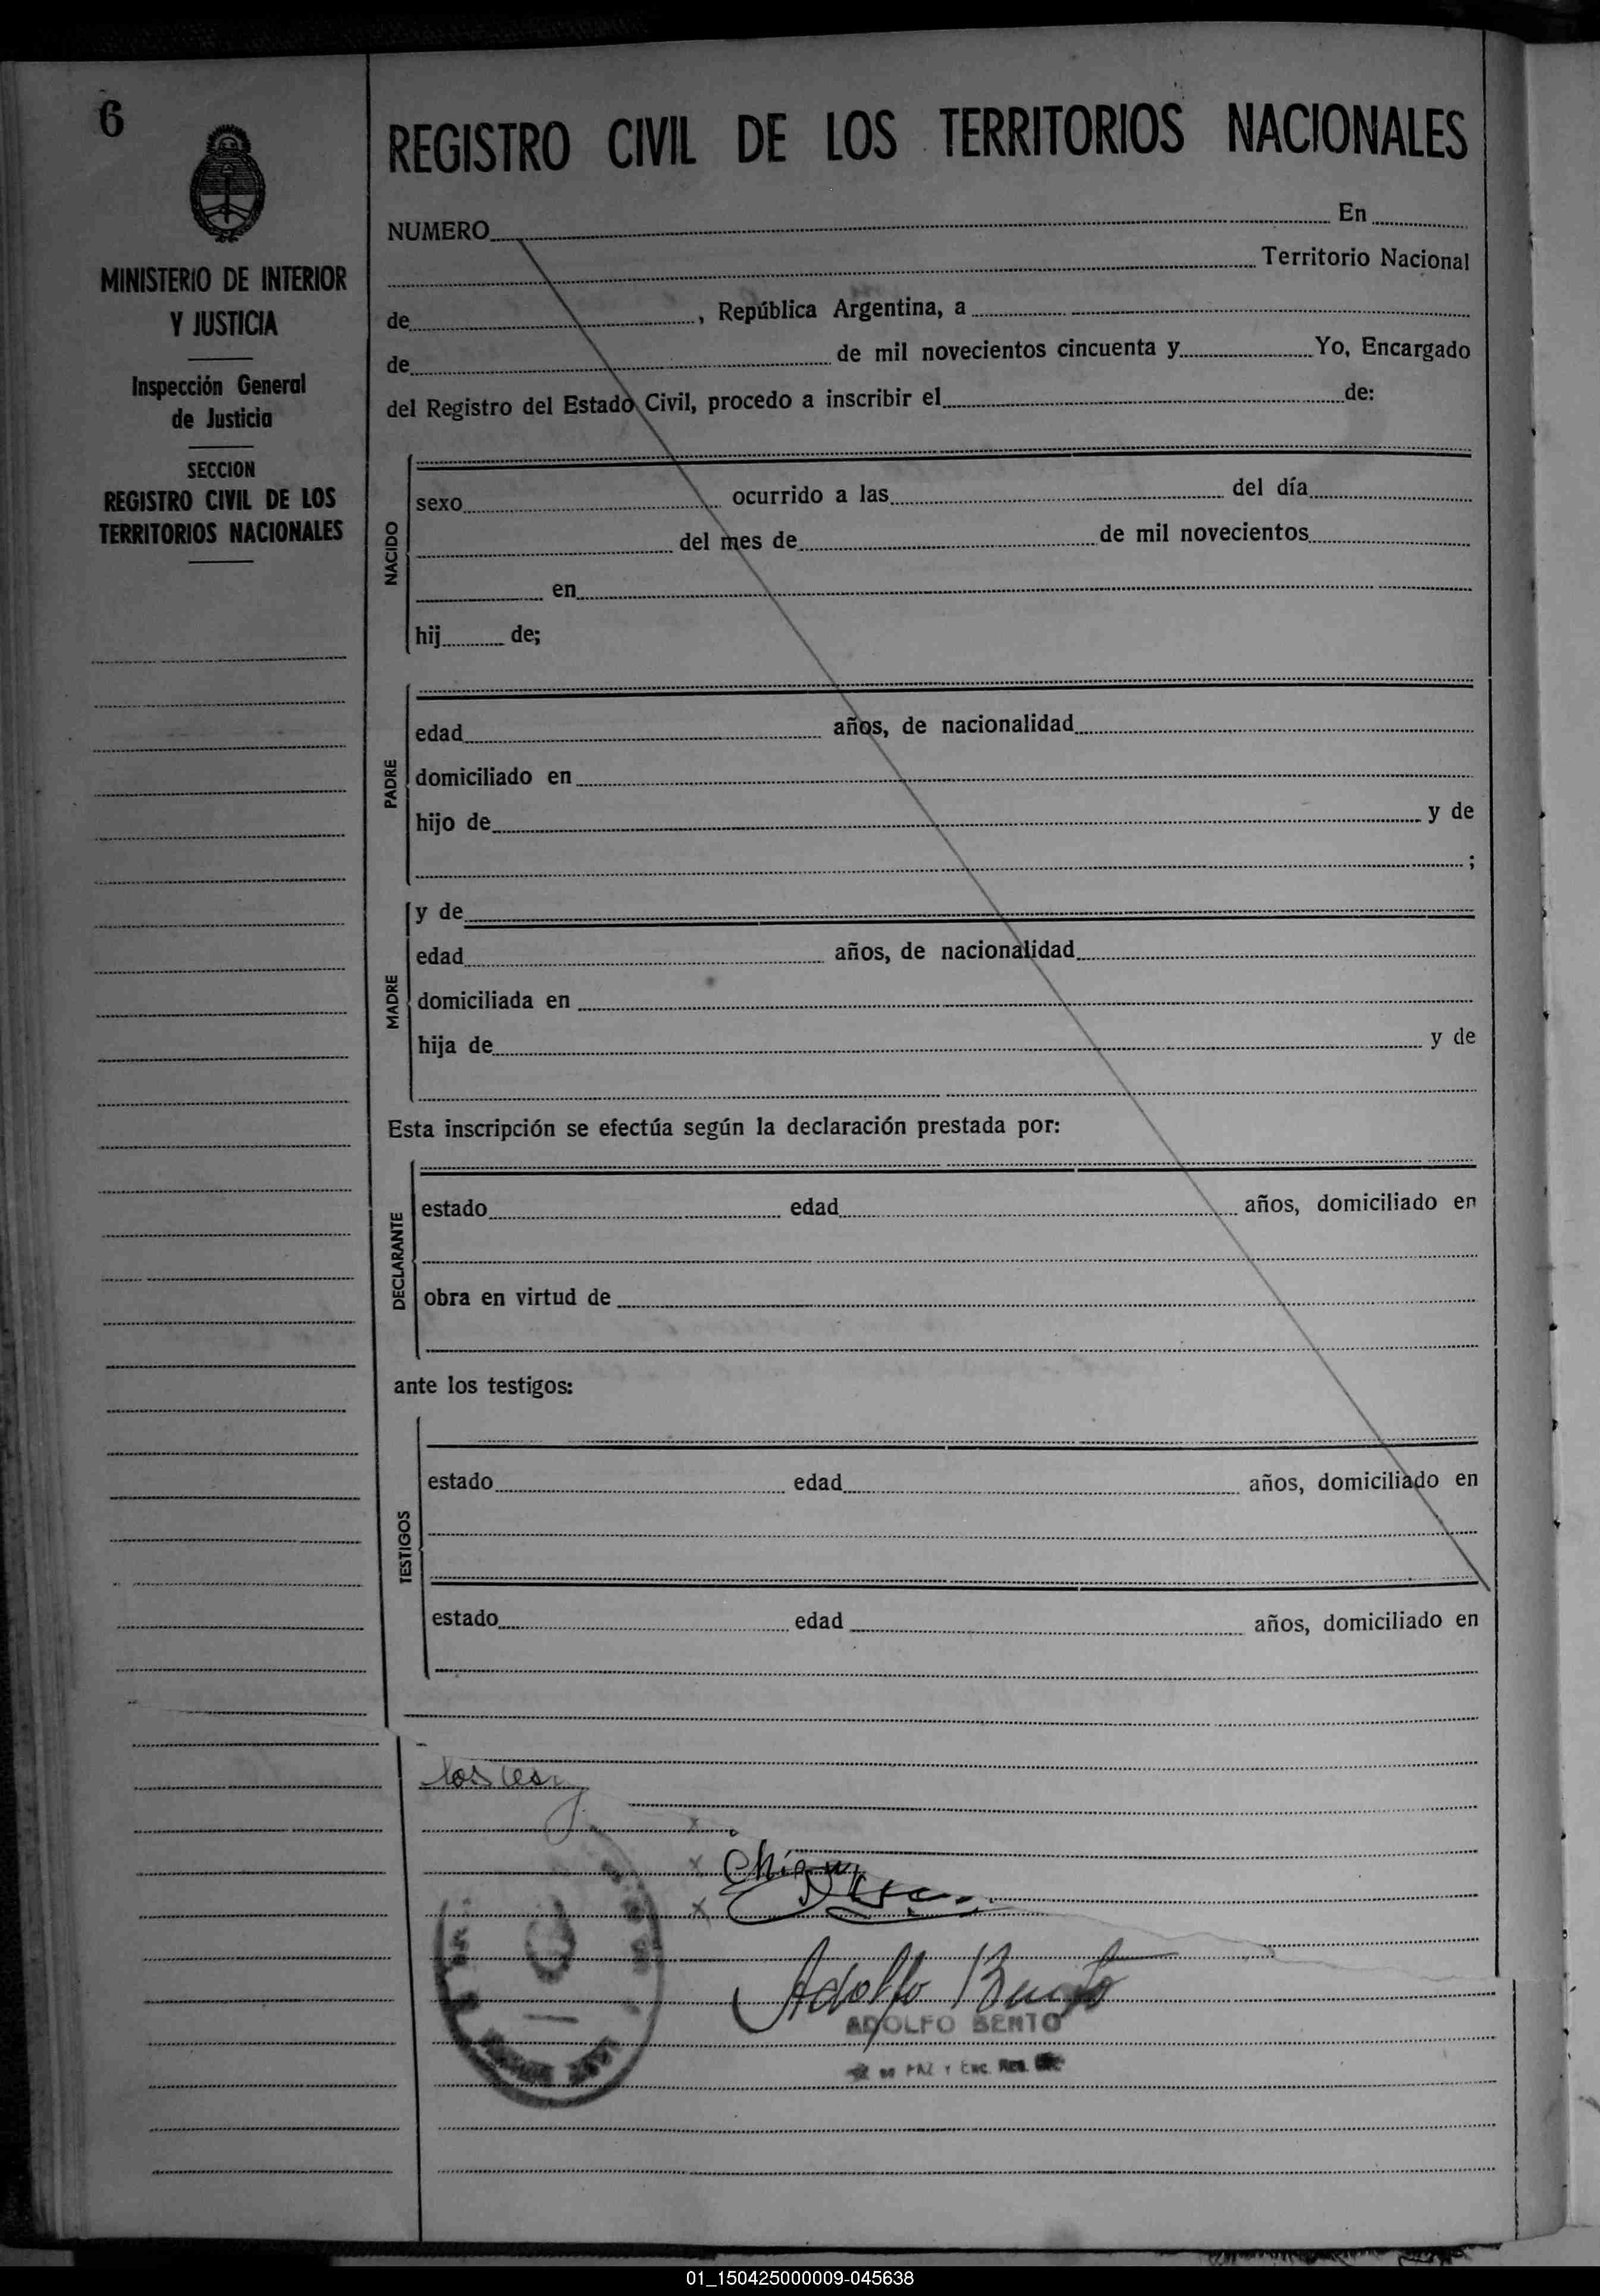 6
MINISTERIO DE INTERIOR
Y JUSTICIA
Inspección General
de Justicia
SECCION
REGISTRO CIVIL DE LOS
TERRITORIOS NACIONALES
REGISTRO CIVIL DE LOS TERRITORIOS NACIONALES
NUMERO En
Territorio Nacional
de , República Argentina, a
de de mil novecientos cincuenta y Yo, Encargado
del Registro del Estado Civil, procedo a inscribir el de:
NACIDO
sexo ocurrido a las del día
del mes de de mil novecientos
en
hij de;
PADRE
edad años, de nacionalidad
domiciliado en
hijo de y de
;
MADRE
y de
edad años, de nacionalidad
domiciliada en
hija de y de
Esta inscripción se efectúa según la declaración prestada por:
DECLARANTE
estado edad años, domiciliado en
obra en virtud de
ante los testigos:
TESTIGOS
estado edad años, domiciliado en
estado edad años, domiciliado en
Adolfo Bento
ADOLFO BENTO
PAZ Y ENC. REG.
01_150425000009-045638